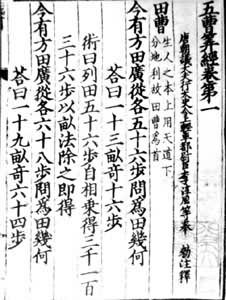 五曹筭經卷第一
唐朝議大夫行太史令上輕車都尉臣李淳風等奉 勅注釋
田曹
生人之本上用天道下
分地利故田曹為首
今有方田廣從各五十六步問為田幾何
荅曰一十三畝奇十六步
術曰列田五十六步自相乘得三千一百
三十六步以畝法除之即得
今有方田廣從各六十八步問為田幾何
荅曰一十九畝奇六十四步